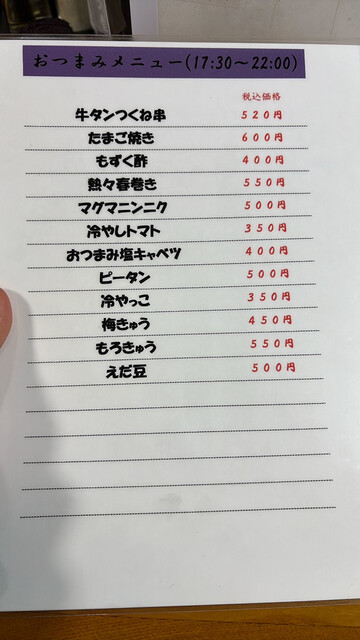 おつまみメニュー(17:30～22:00)
税込価格
牛タンつくね串 520円
たまご焼き 600円
もずく酢 400円
熱々春巻き 550円
マグマニンニク 500円
冷やしトマト 350円
おつまみ塩キャベツ 400円
ピータン 500円
冷やっこ 350円
梅きゅう 450円
もろきゅう 550円
えだ豆 500円